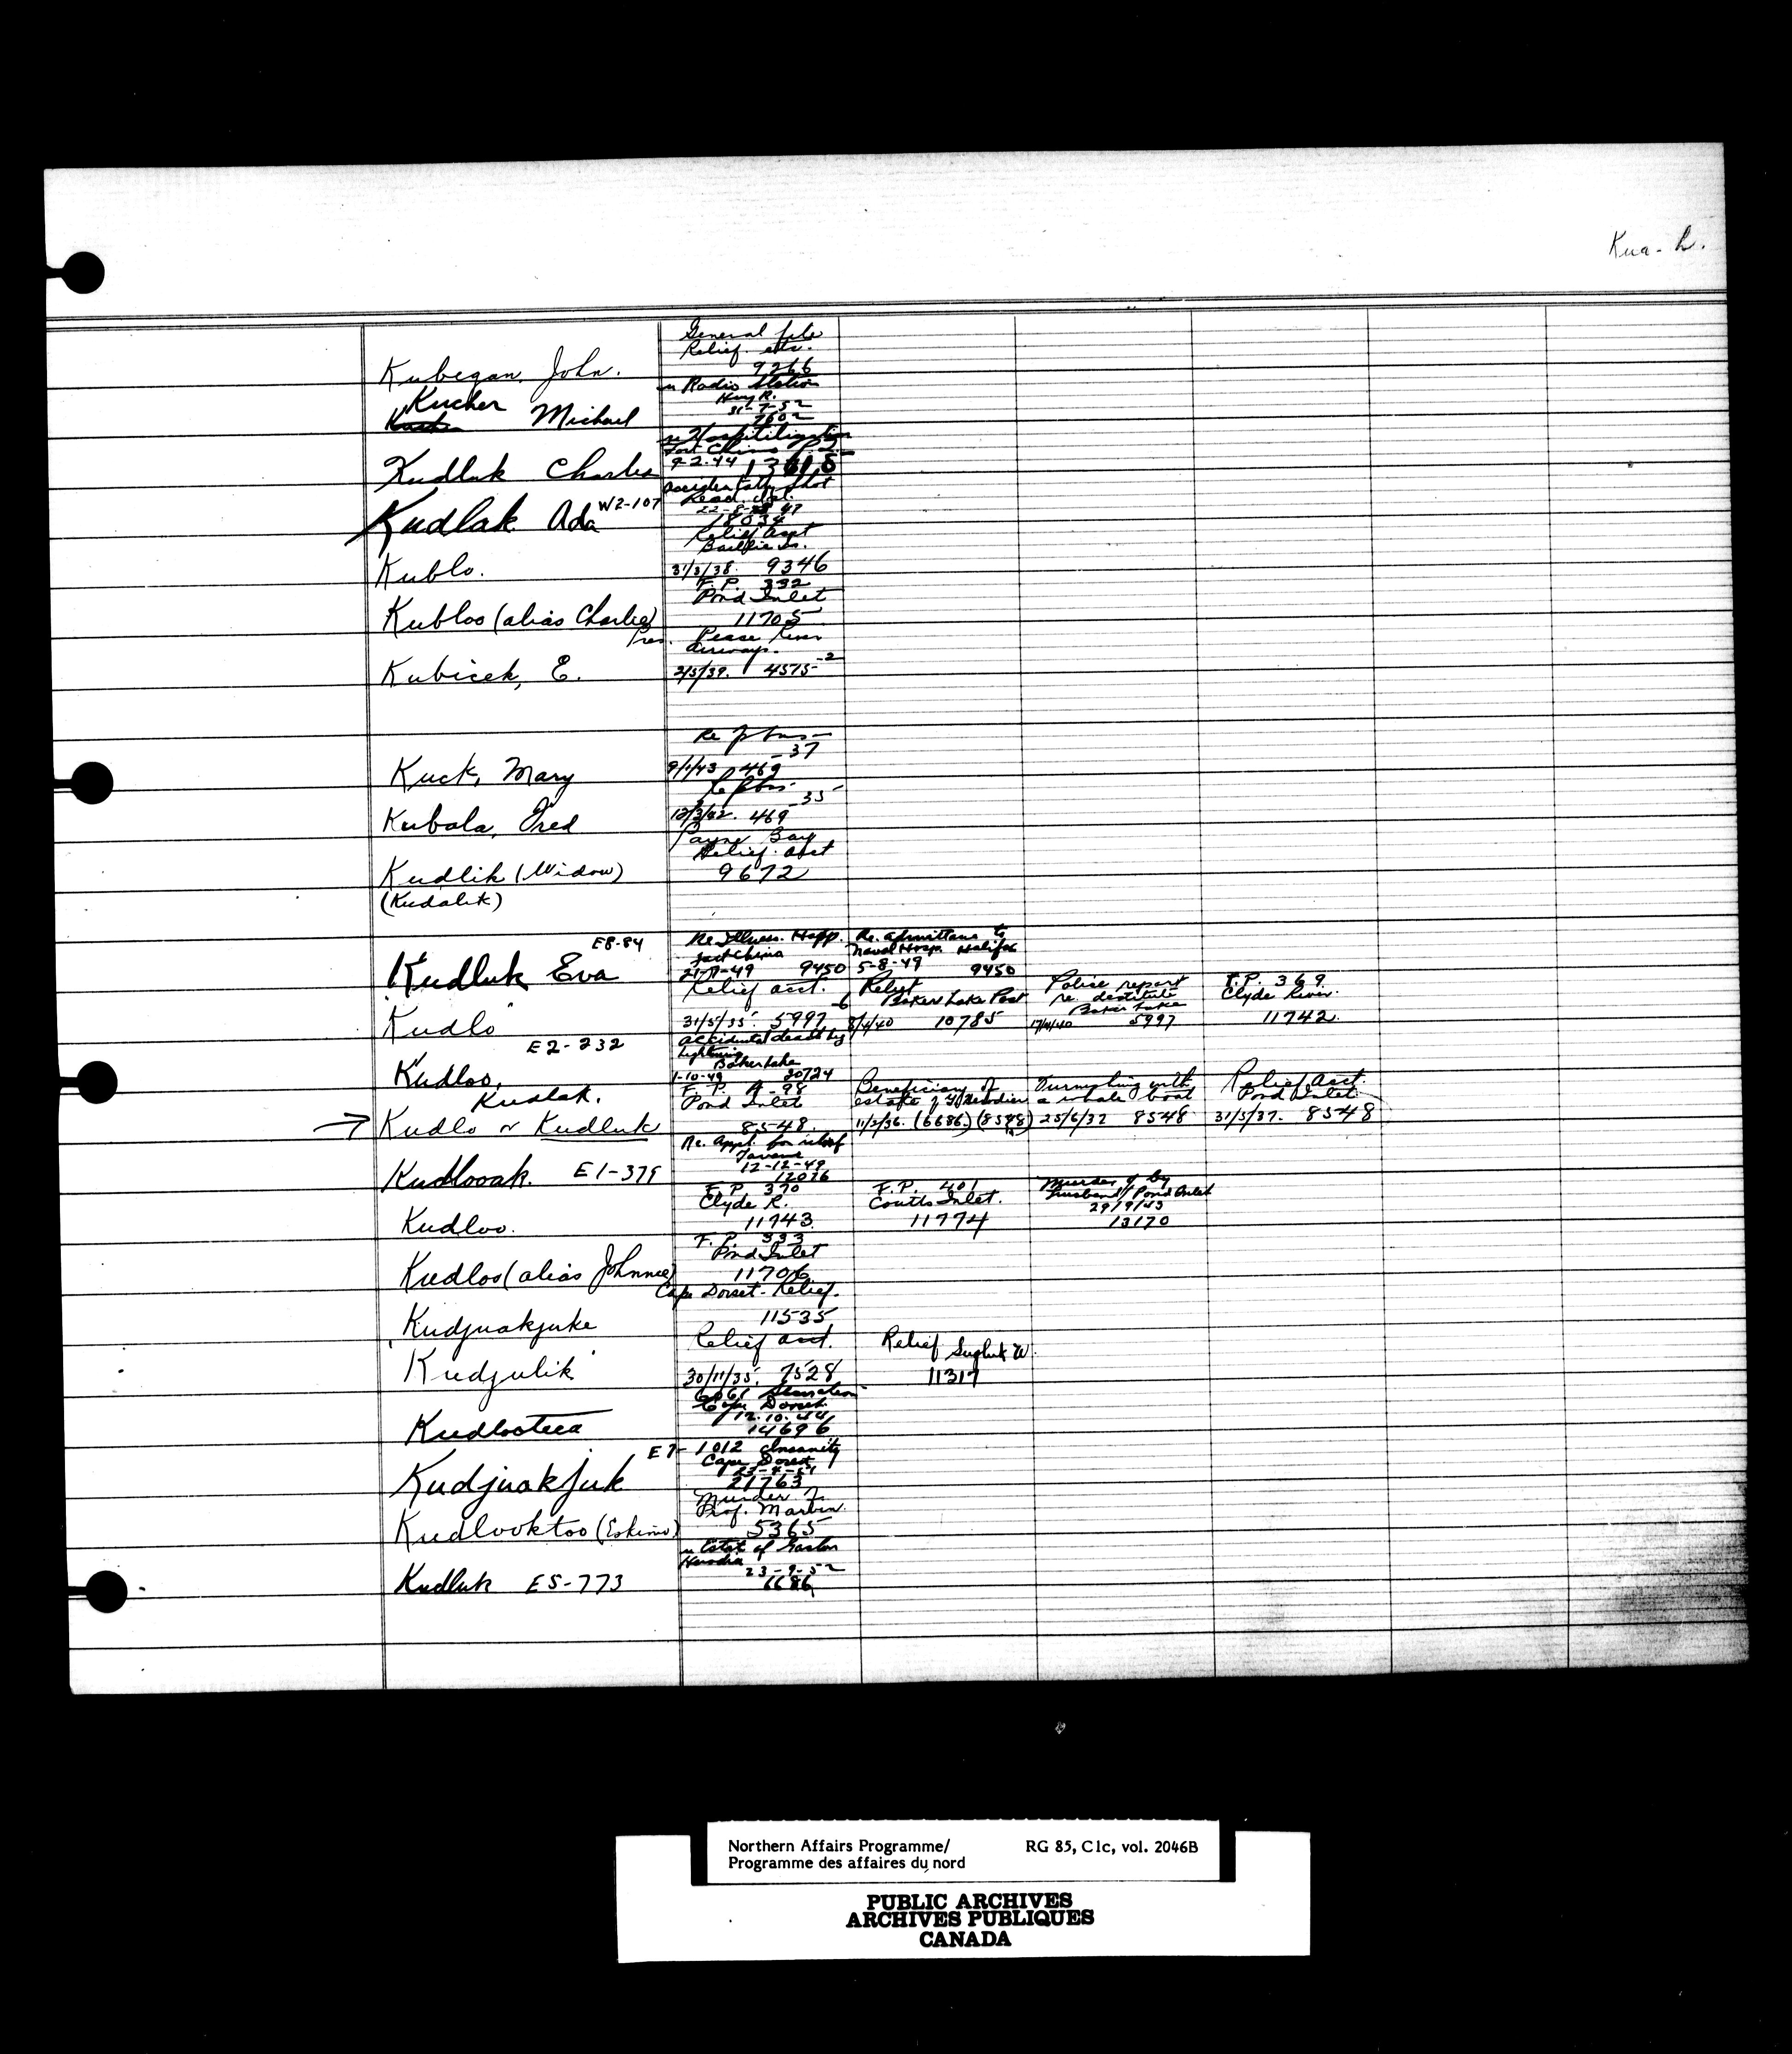 Kua - L.
General file
Relief. etc.
Kubegan, John. 9266
Radio Station
Kucher
Hay R.
31-7-52
Michael 7602
re Hospitilization
Fort Chimo P.Q.
9-2-44
Kudluk Charles
accidentally shot
Read. Isl.
22-8-47
Kudlak Ada W2-107 18034
Relief acct
Baillie Is.
Kublo. 31/3/38. 9346
F.P. 332
Pond Inlet
Kubloo (alias Charlie) 11705
Pres. Peace River
Airways.
Kubicek, E. 2/5/39. 4575-2
-37
Kuck, Mary 9/1/43 469
-35
Kubala, Fred 469
Payne Bay
Relief acct
Kudlik (Widow) 9672
(Kudalik)
E8-84 Re Illness. Hosp. Re. admittance to
Fort Chimo Naval Hosp. Halifax
Kudluk Eva 9450 5-8-49 9450
Relief acct. Relief Police report F.P. 369
-6 Baker Lake Post re. destitute Clyde River.
Baker Lake
Kudlo 31/5/35. 5997 8/4/40 10785 5997 11742
E2-232 accidental death by
lightning
Baker Lake
Kudloo, 1-10-49 20724
Kudlak. F.P. A-98 Beneficiary of Relief Acct.
Pond Inlet estate of a whale boat Pond Inlet
→ Kudlo or Kudluk 8548. (6686) (8548) 25/6/37 8548 31/3/37. 8548
Re. Appl. for relief
Tavane
12-12-49
Kudlooak. E1-379 12076
F.P. 370 F.P. 401 Murder of by
Clyde R. Coutts Inlet. husband Pond Inlet
Kudloo. 11743 11774 13170
F.P. 333
Pond Inlet
Kudloo (alias Johnnie) 11706
Cape Dorset - Relief.
Kudjuakjuke 11535
Relief acct. Relief Sugluk W.
Kudjulik 30/11/35. 7528 11317
Starvation
Cape Dorset
12.10.44
Kudlooteea 14696
E7-1012 Insanity
Cape Dorset
Kudjuakjuk 21763
Murder of
Prof. Marvin
Kudlooktoo (Eskimo) 5365
re Estate of Gaston
Herodier
23-9-52
Kudluk E5-773 6686
Northern Affairs Programme/ RG 85, C1c, vol. 2046B
Programme des affaires du nord
PUBLIC ARCHIVES
ARCHIVES PUBLIQUES
CANADA